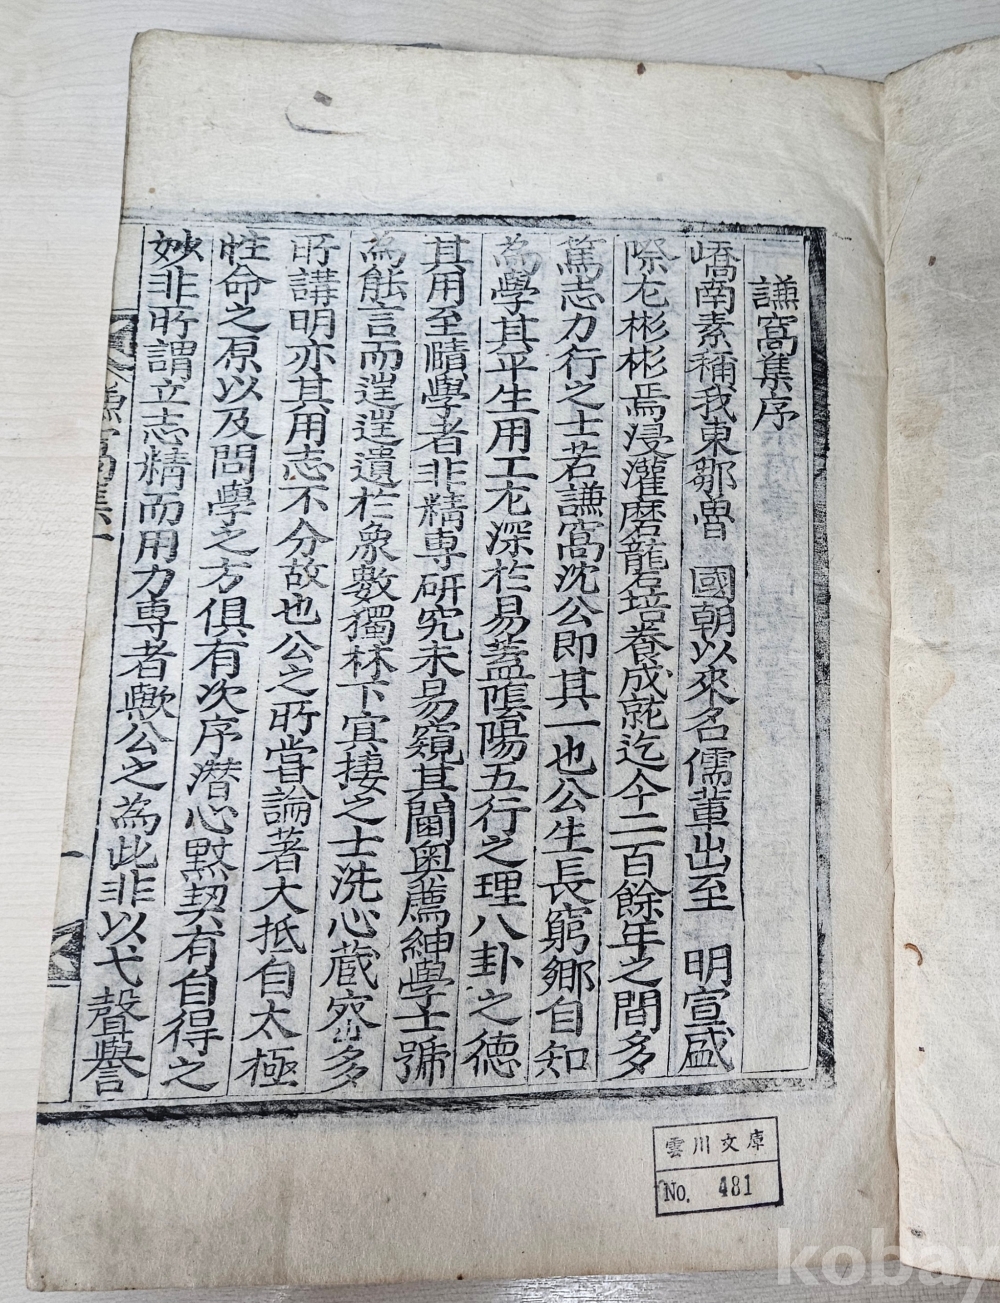 謙窩集序
嶠南素稱我東鄒魯 國朝以來名儒輩出至 明宣盛
際尤彬彬焉浸灌磨礱培養成就迄今二百餘年之間多
篤志力行之士若謙窩沈公即其一也公生長窮鄉自知
為學其平生用工尤深於易蓋陰陽五行之理八卦之德
其用至賾學者非精專研究未易窺其閫奧薦紳學士號
為能言而逞逞遺於象數獨林下冥棲之士洗心藏密多
所講明亦其用志不分故也公之所嘗論著大抵自太極
性命之原以及問學之方俱有次序潛心默契有自得之
妙非所謂立志精而用力專者歟公之為此非以弋聲譽
謙窩集
一
雲川文庫
No. 481
kobay